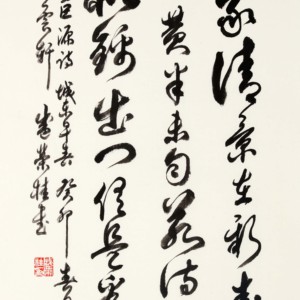 家清景在新春
黄半未匀若待
似锦出门俱是看
巨源诗 城东早春 癸卯春
雲軒 荣桂书